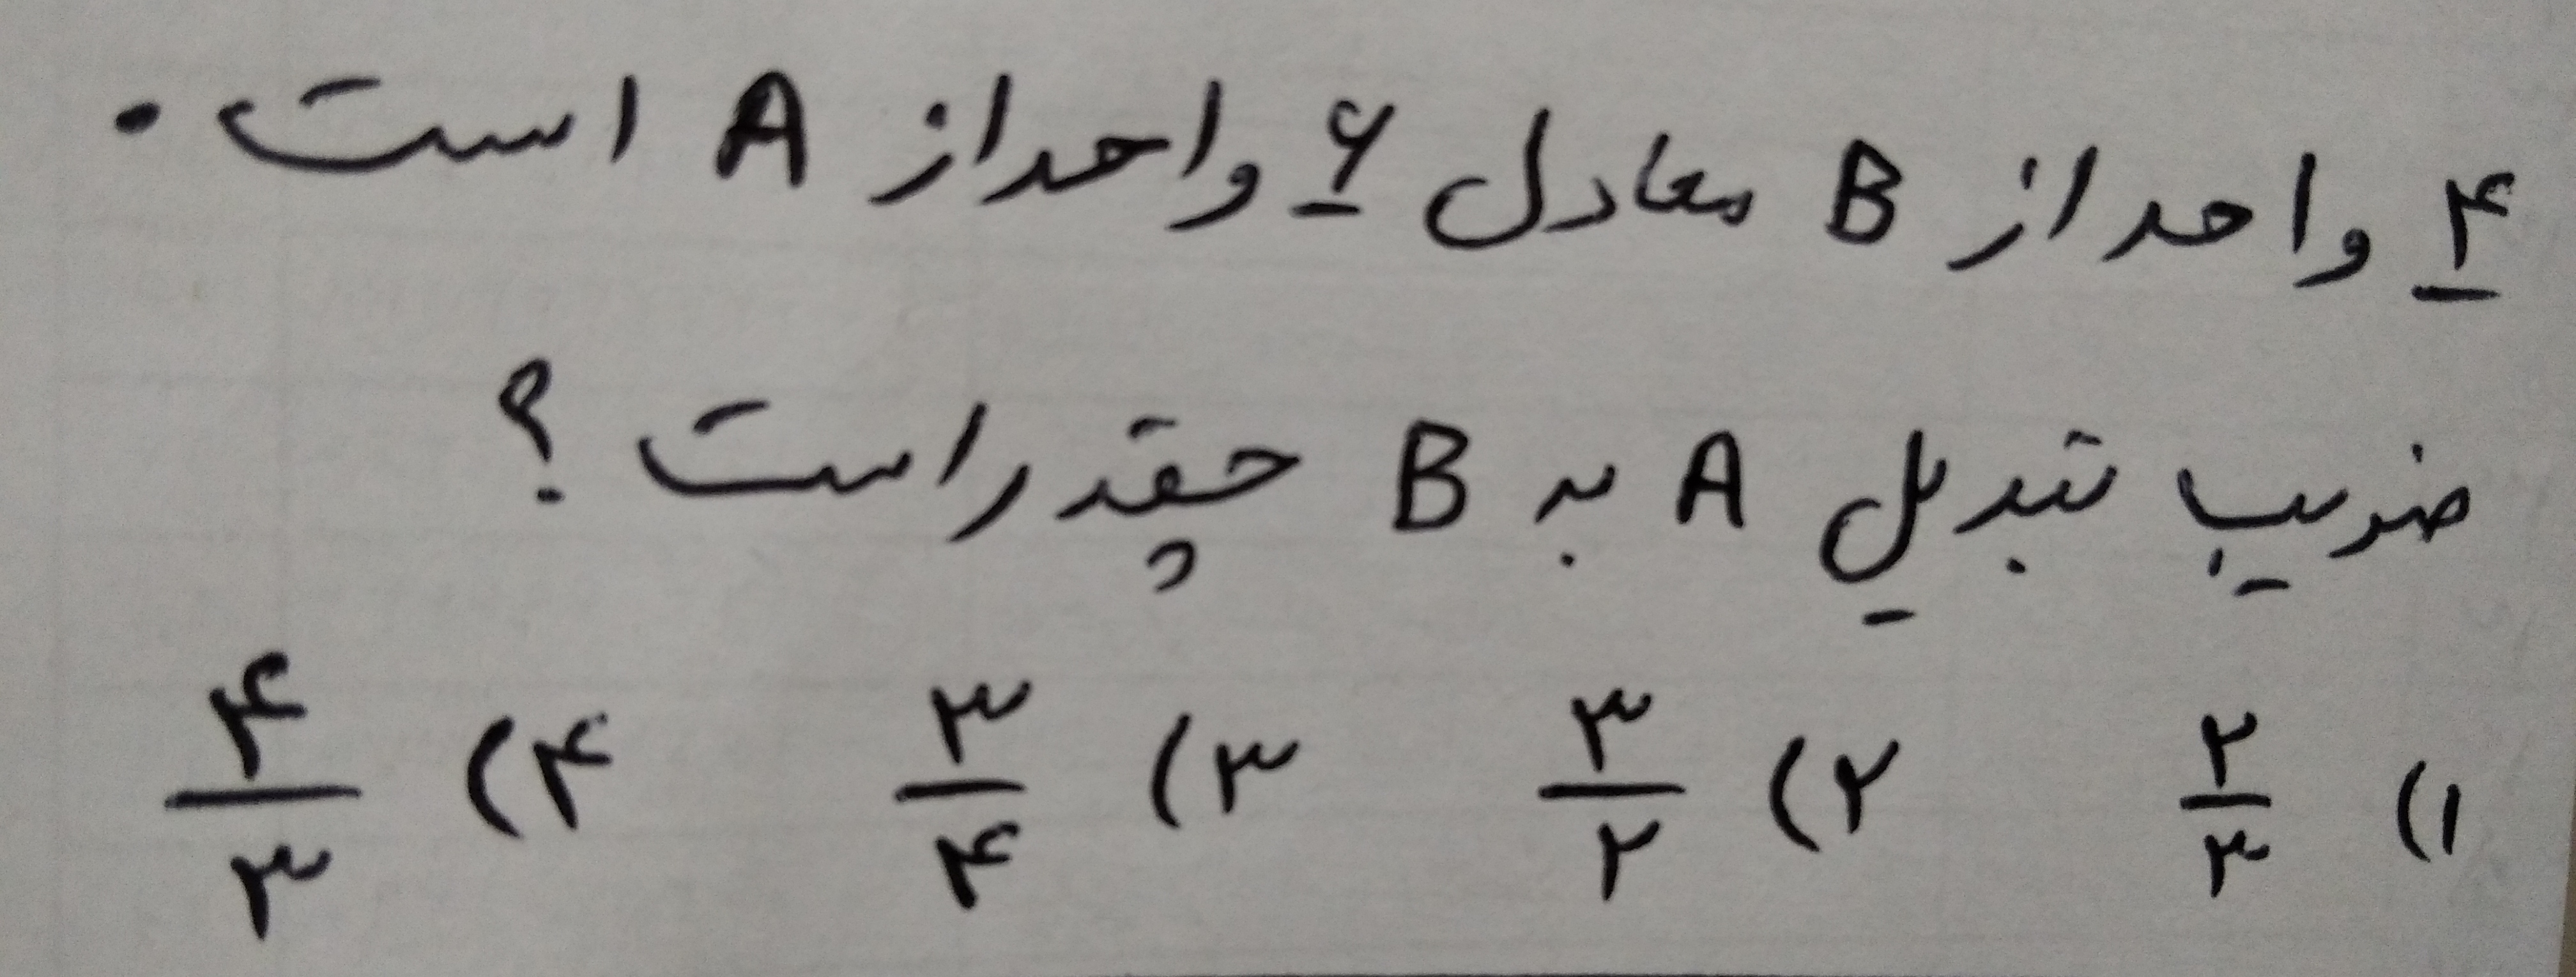 ۴ واحد از B معادل ۶ واحد از A است.
ضریب تبدیل A به B چقدر است؟
۱) ۲/۳ ۲) ۳/۲ ۳) ۳/۴ ۴) ۴/۳